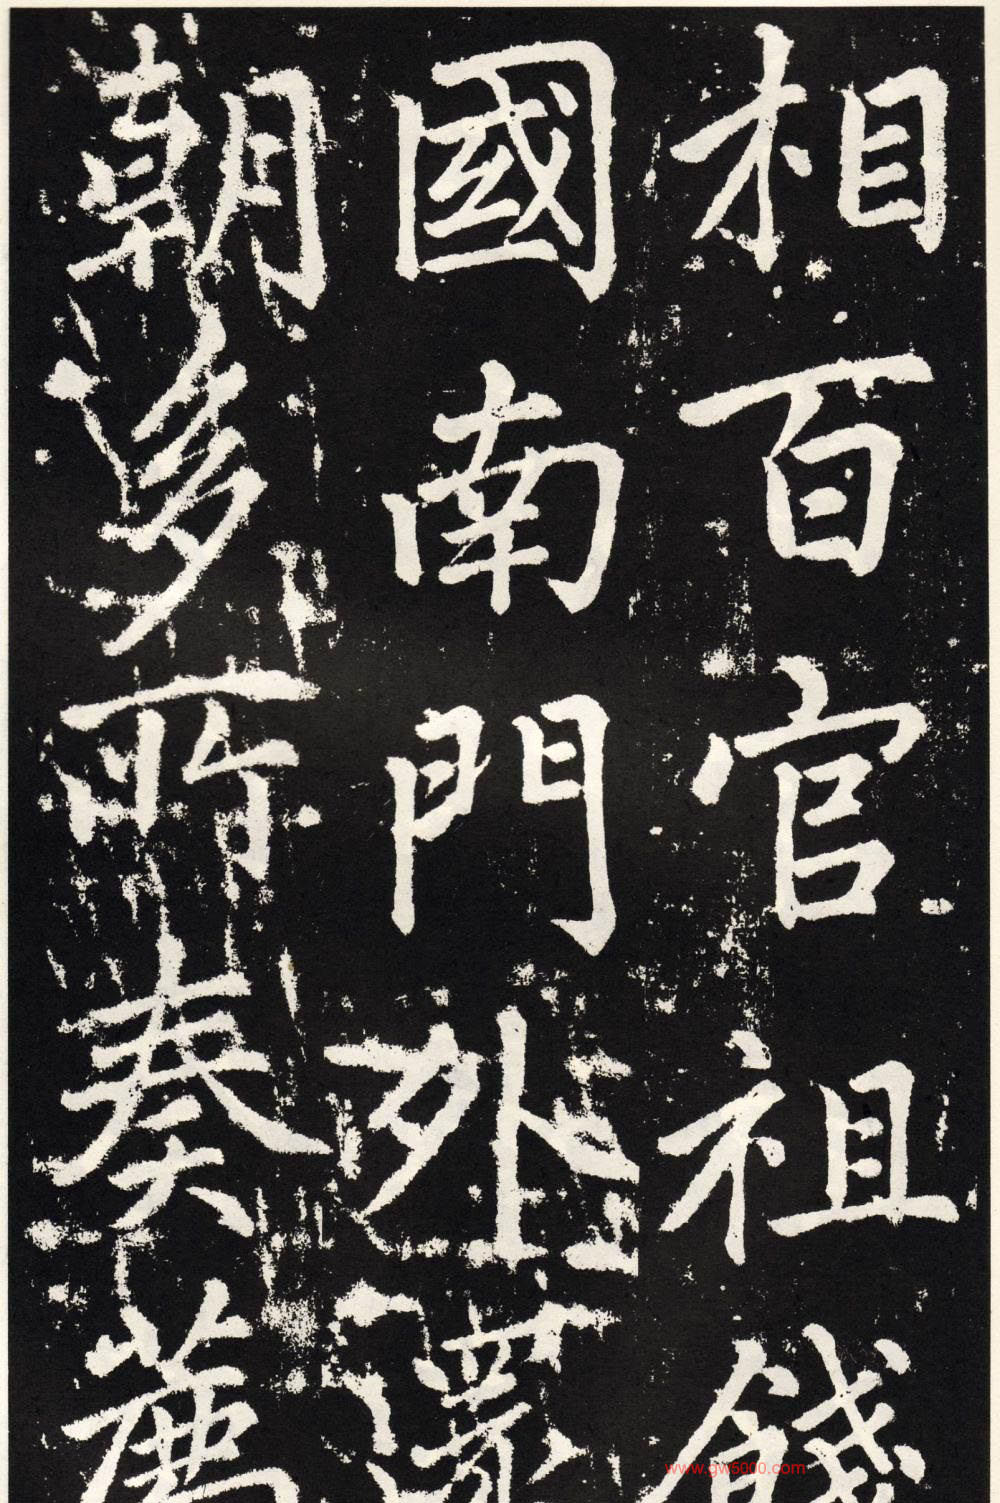 相百官祖餞
國南門外瀍
朝多所奏薦
www.gw5000.com